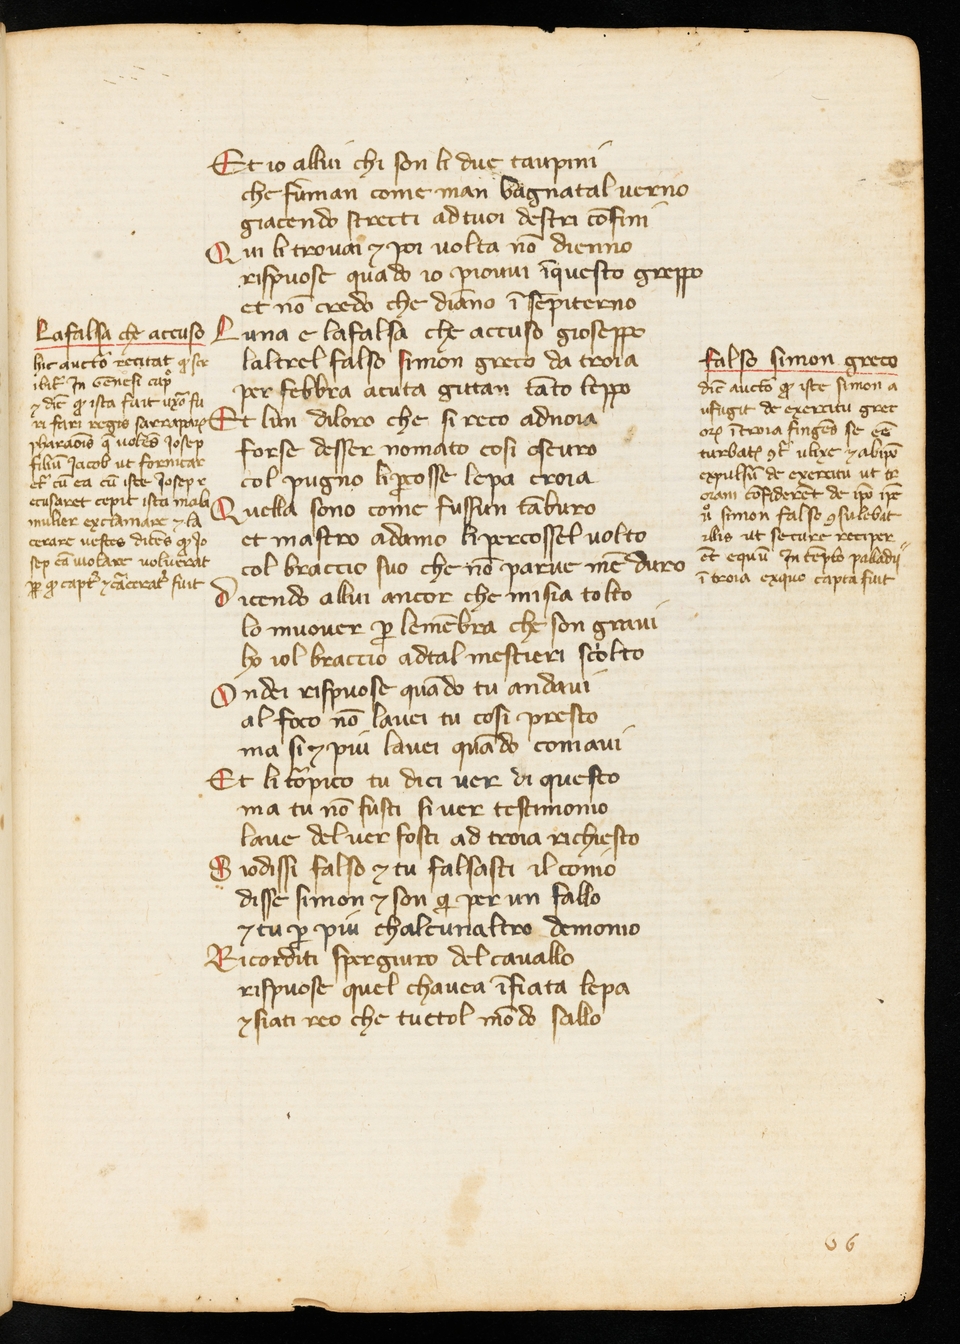 Et io allui chi son li due taupini
che fuman come man bagnatal uerno
giacendo stretti ad tuoi destri cōfini
Qui li trouai ⁊ poi uolta nō dienno
rispuose quādo io piouui īquesto greppo
et nō credo che diāno ī sēpiterno
Luna e lafalsa che accuso gioseppe
laltrel falso simon greco da troia
per febbra acuta gittan tāto leppo
Et lun diloro che si reco adnoia
forse desser nomato cosi oscuro
col pugno li ꝑcosse lepa croia
Quella sono come fussiun tāburo
et mastro adamo li percossel uolto
col braccio suo che nō parue mē duro
Dicendo allui ancor che misia tolto
lo muouer ꝑ lemēbra che son graui
ho iol braccio adtal mestieri sciolto
Ondei rispuose quādo tu andaui
al foco nō lauei tu cosi presto
ma si ⁊ piu lauei quādo coniaui
Et li tropico tu dici uer di questo
ma tu nō fusti si uer testimonio
laue del uer fosti ad troia richiesto
Siodissi falso ⁊ tu falsasti il conio
disse simon ⁊ son qi per un fallo
⁊ tu ꝑ piu chalcunaltro demonio
Ricorditi spergiuro del cauallo
rispuose quel chauea īfiata lepa
⁊ siati reo che tuctol mōdo sallo
Lafalsa che accuso
hic auctor recitat q scr
In Genesi cap
⁊ dic̄ ꝙ ista fuit uxor fu
pharaōis q uolēs Josep
filiū Jacob ut fornicar
cū ea cū iste Josep r
ecusaret cepit ista mala
mulier exclamare ⁊ la
cerare uestes dicēs ꝙ Jo
sep eā uiolare uoluerat
ꝙ captꝰ ⁊ carceratꝰ fuit
falso simon greco
dic̄ auctor ꝙ iste simon a
ufugit de exercitu grec
orꝝ ī troia fingēs se eē
ulixe ⁊ abipō
expulsū de exercitu ut tr
oiani cōfiderēt de ipō
simon falso ꝯsulebat
illis ut secure reciper
ēt equū In tēplo paladij
ī troia exquo capta fuit
66